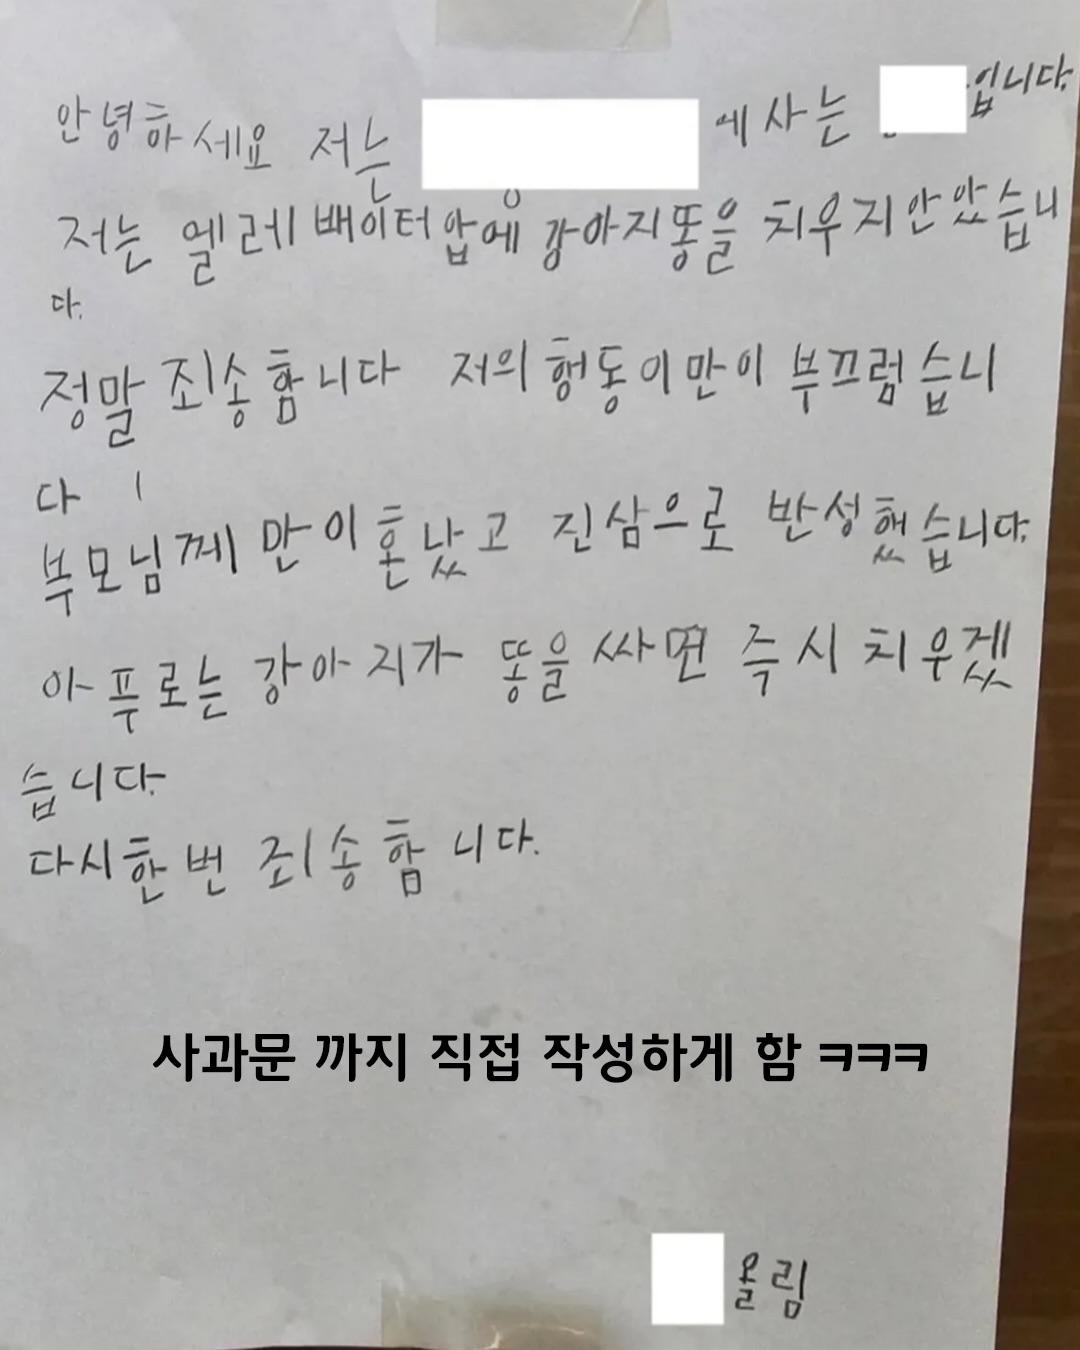 안녕하세요 저는 에 사는 입니다.
저는 엘레베이터 압에 강아지 똥을 치우지 안았습니
다.
정말 죄송합니다 저의 행동이 만이 부끄럽습니
다
부모님께 만이 혼났고 진심으로 반성했습니다.
아푸로는 강아지가 똥을 싸면 즉시 치우겠
습니다.
다시한번 죄송합니다.
사과문 까지 직접 작성하게 함 ㅋㅋㅋ
올림